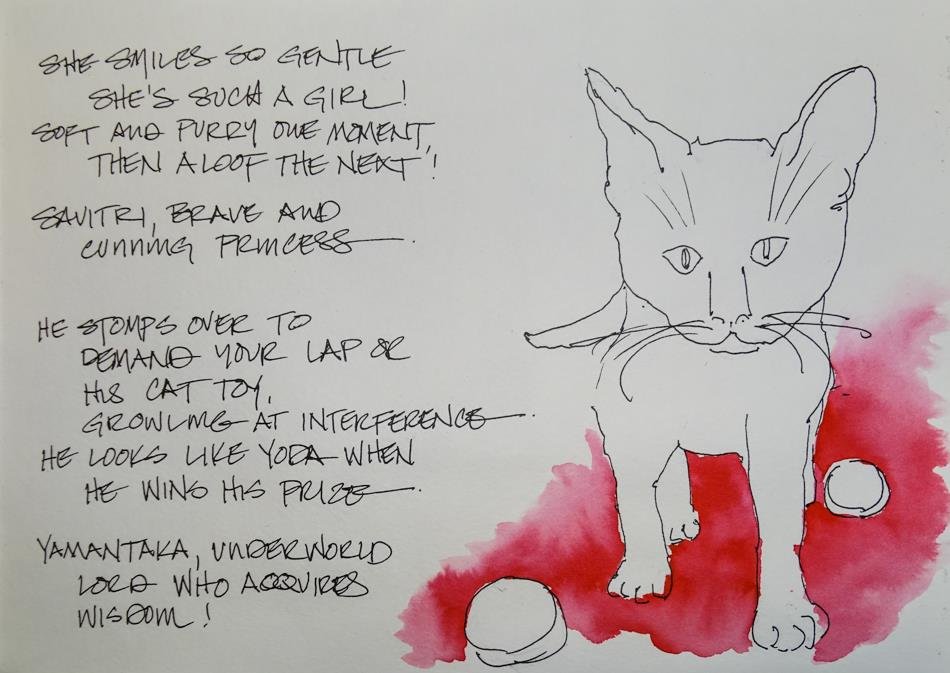 SHE SMILES SO GENTLE
SHE'S SUCH A GIRL!
SOFT AND PURRY ONE MOMENT,
THEN ALOOF THE NEXT!
SAVITRI, BRAVE AND
CUNNING PRINCESS—.
HE STOMPS OVER TO
DEMAND YOUR LAP OR
HIS CAT TOY,
GROWLING AT INTERFERENCE—.
HE LOOKS LIKE YODA WHEN
HE WINS HIS PRIZE—.
YAMANTAKA, UNDERWORLD
LORD WHO ACQUIRES
WISDOM!